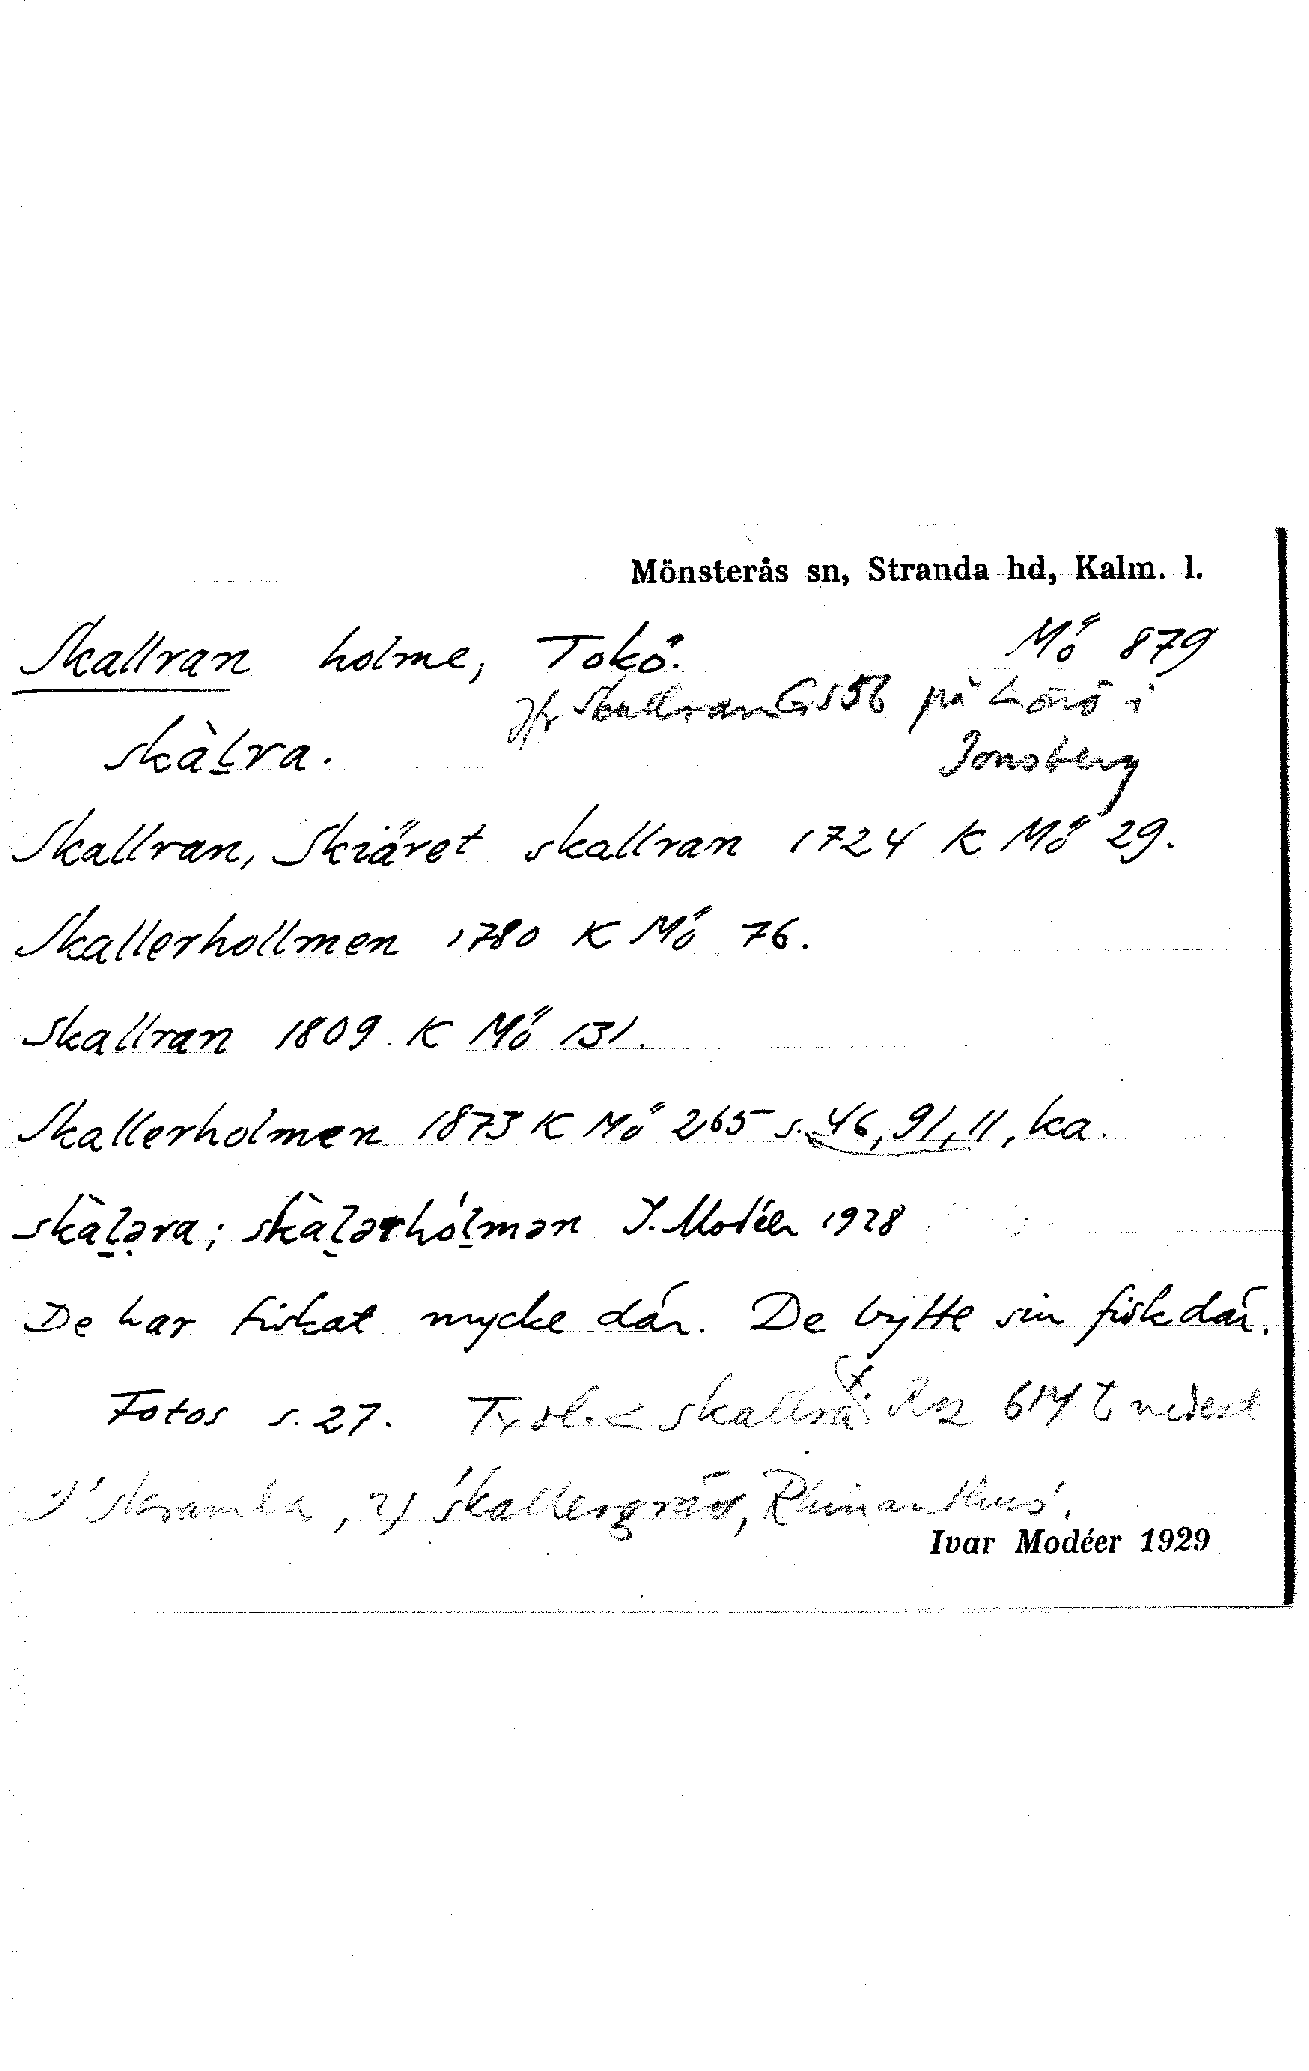 Mönsterås sn, Stranda hd, Kalm. l.
Skallran holme, Tokö. Mö 879
Jfr Skallran G S56 på Lönö i
skàḻra. Jonsberg
Skallran, Skiäret skallran 1724 K Mö 29.
Skallerhollmen 1780 K Mö 76.
Skallran 1809 K Mö 131.
Skallerholmen 1873 K Mö 265 s. 46, 91, 11, ka.
skàḻə̣ra; skàḻərhóḻmən I. Modéer 1928
De har fiskat mycke där. De bytte sin fisk där.
Fotos s. 27. < skallra Rz 614 nederst
1) 'skramla, 2) 'skallergräs, Rhinanthus'.
Ivar Modéer 1929